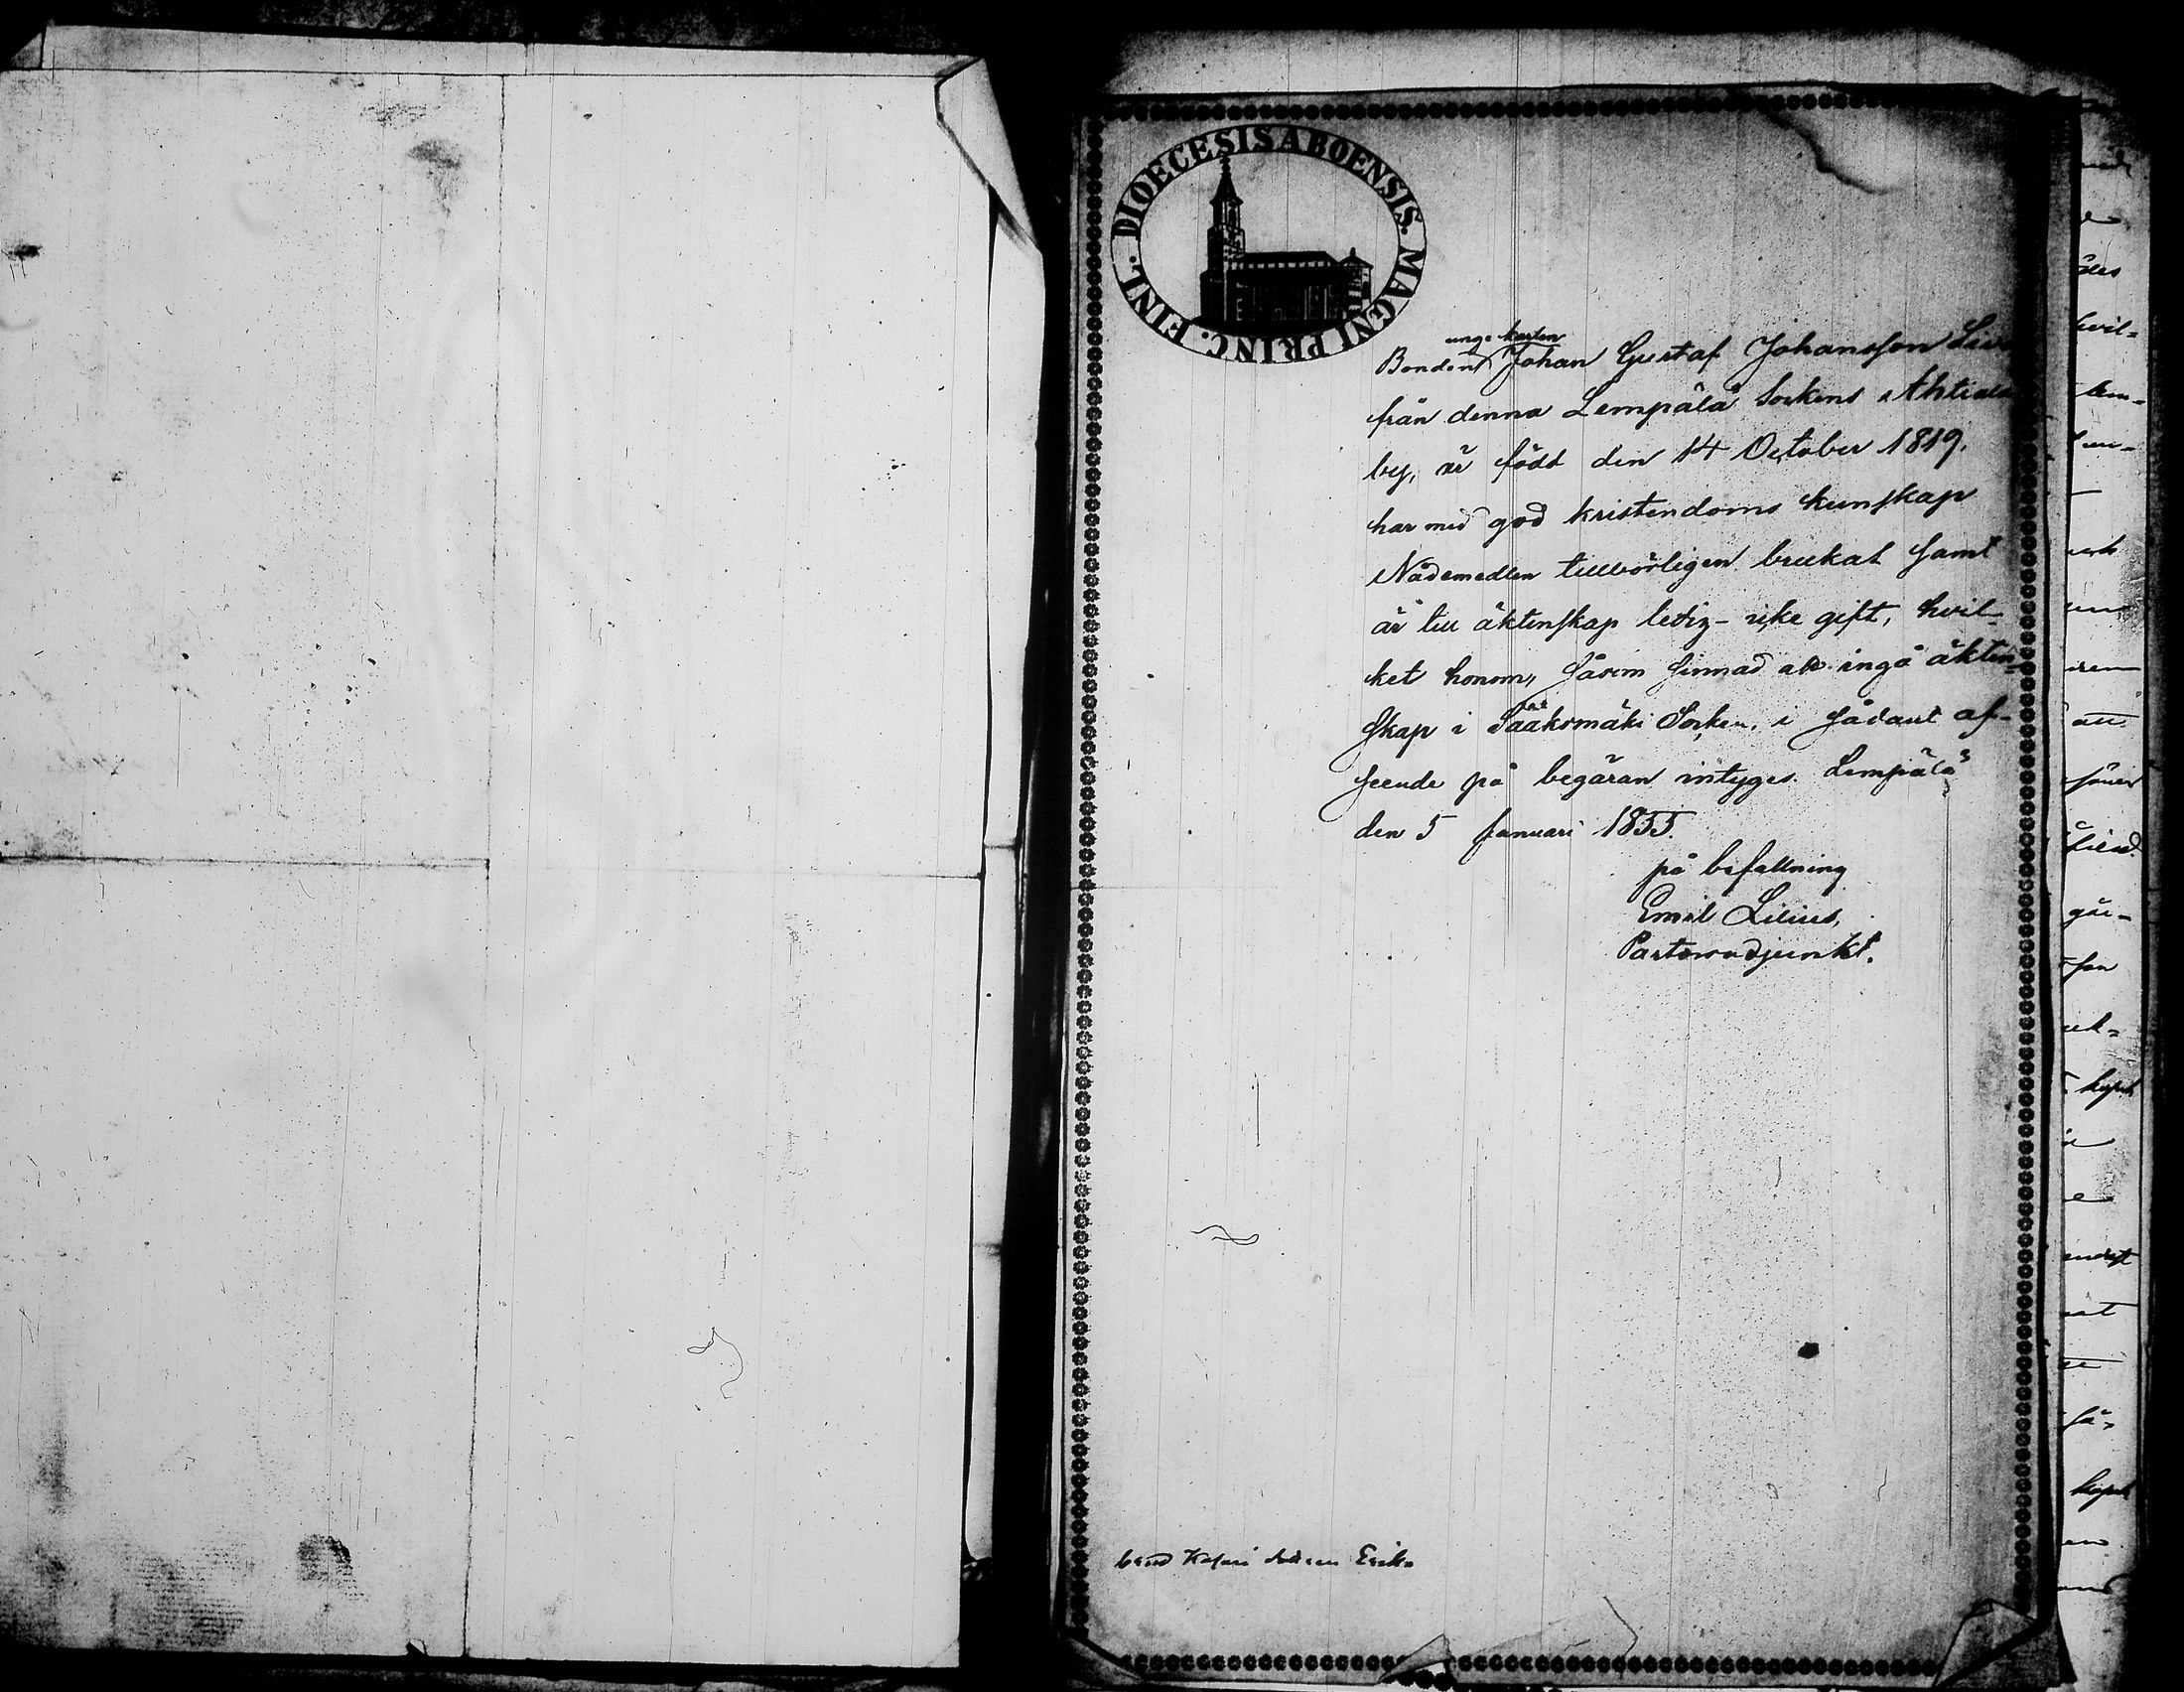 DIOECESIS ABOENSIS. MAGNI PRINC. FINL.
unge karlen
Bonden Johan Gustaf Johansson
från denna Lempälä Sockens
by, är född den 14 October 1819.
har med god kristendoms kunskap
Nådemedlen tillbörligen brukat samt
är till äktenskap ledig - icke gift, hvil-
ket honom, såsom sinnad att ingå äkten-
skap i Sääksmäki Socken, i sådant af-
seende på begäran intyges. Lempälä
den 5 Januari 1855.
på befallning
Emil Lilius,
Pastorsadjunkt.
Erika